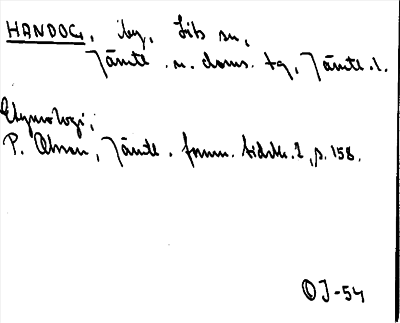 HANDOG, by, Lits sn,
Jämtl. n. doms. tg, Jämtl. l.
Etymologi:
P. Olsson, Jämtl. fornm. tidskr. 2, s. 158.
OJ-54